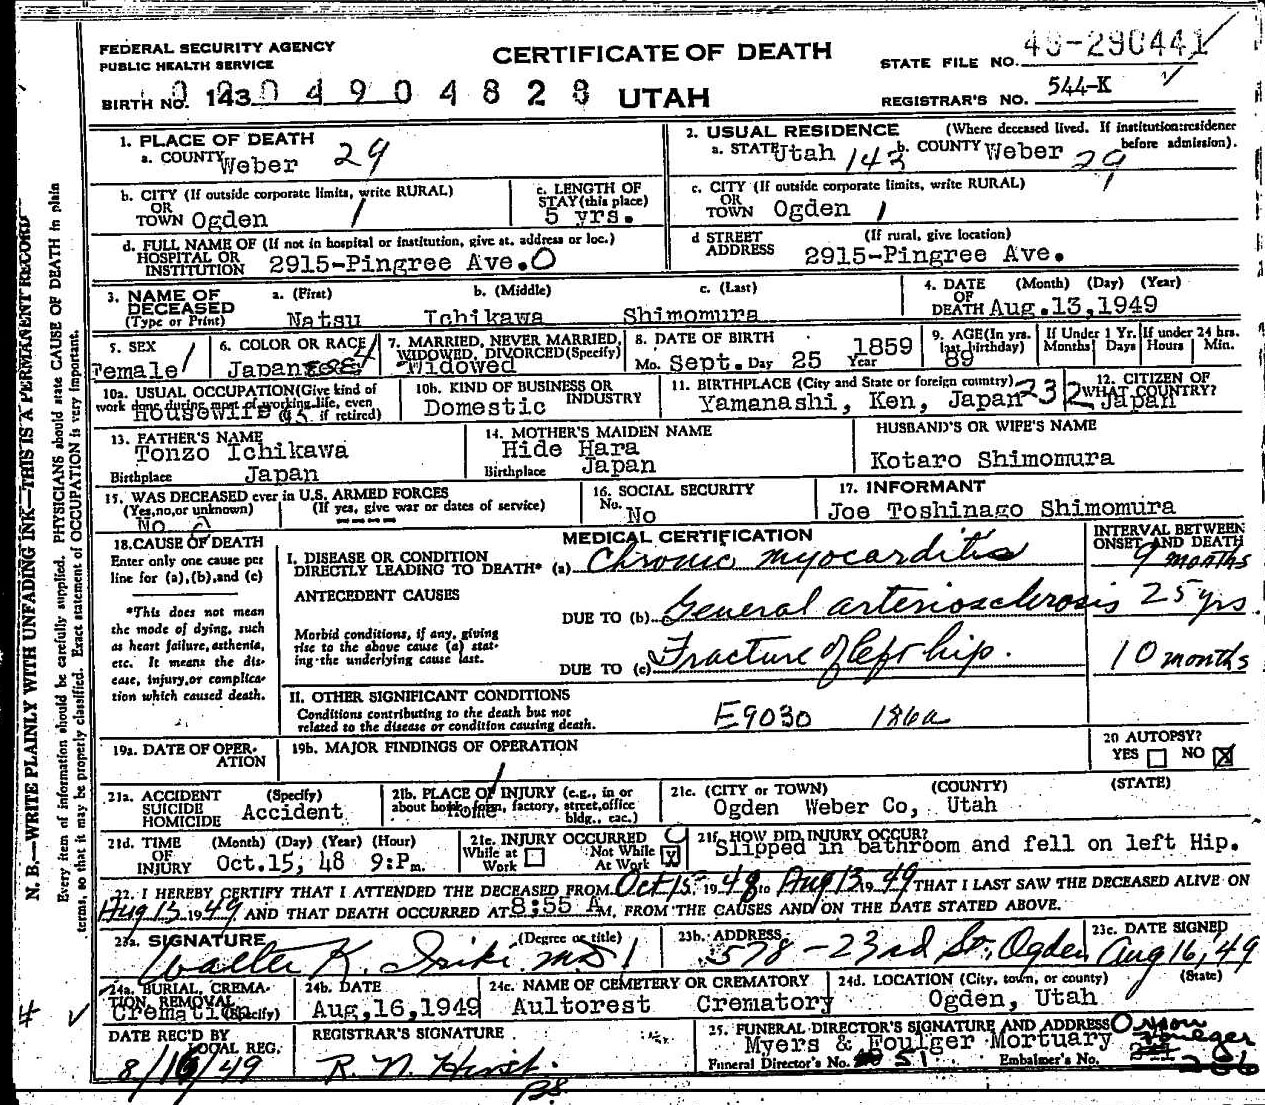 FEDERAL SECURITY AGENCY
PUBLIC HEALTH SERVICE
CERTIFICATE OF DEATH
UTAH
STATE FILE NO. 49-290441
REGISTRAR'S NO. 544-K
BIRTH NO. 143 0 4 9 0 4 8 2 8
1. PLACE OF DEATH
a. COUNTY Weber 29
2. USUAL RESIDENCE (Where deceased lived. If institution: residence before admission).
a. STATE Utah 143 b. COUNTY Weber 29
b. CITY (If outside corporate limits, write RURAL)
OR
TOWN Ogden 1
c. LENGTH OF
STAY (this place)
5 yrs.
c. CITY (If outside corporate limits, write RURAL)
OR
TOWN Ogden 1
d. FULL NAME OF (If not in hospital or institution, give st. address or loc.)
HOSPITAL OR
INSTITUTION 2915-Pingree Ave. O
d STREET (If rural, give location)
ADDRESS 2915-Pingree Ave.
3. NAME OF DECEASED
(Type or Print)
a. (First) b. (Middle) c. (Last)
Natsu Ichikawa Shimomura
4. DATE (Month) (Day) (Year)
OF
DEATH Aug.13,1949
5. SEX
Female 1
6. COLOR OR RACE
Japanese 4
7. MARRIED, NEVER MARRIED,
WIDOWED, DIVORCED (Specify)
Widowed
8. DATE OF BIRTH
Mo. Sept. Day 25 Year 1859
9. AGE (In yrs.
last birthday)
89
If Under 1 Yr.
Months Days
If under 24 hrs.
Hours Min.
10a. USUAL OCCUPATION (Give kind of
work done during most of working life, even
if retired)
Housewife
10b. KIND OF BUSINESS OR
INDUSTRY
Domestic
11. BIRTHPLACE (City and State or foreign country)
Yamanashi, Ken, Japan 232
12. CITIZEN OF
WHAT COUNTRY?
Japan
13. FATHER'S NAME
Tonzo Ichikawa
Birthplace Japan
14. MOTHER'S MAIDEN NAME
Hide Hara
Birthplace Japan
HUSBAND'S OR WIFE'S NAME
Kotaro Shimomura
15. WAS DECEASED ever in U.S. ARMED FORCES
(Yes, no, or unknown) (If yes, give war or dates of service)
No ----
16. SOCIAL SECURITY
No. No
17. INFORMANT
Joe Toshinago Shimomura
18. CAUSE OF DEATH
Enter only one cause per
line for (a), (b), and (c)
*This does not mean
the mode of dying, such
as heart failure, asthenia,
etc. It means the dis-
ease, injury, or complica-
tion which caused death.
MEDICAL CERTIFICATION
INTERVAL BETWEEN
ONSET AND DEATH
I. DISEASE OR CONDITION
DIRECTLY LEADING TO DEATH* (a) Chronic myocarditis 9 months
ANTECEDENT CAUSES
DUE TO (b) General arteriosclerosis 25 yrs.
Morbid conditions, if any, giving
rise to the above cause (a) stat-
ing the underlying cause last.
DUE TO (c) Fracture of left hip. 10 months
II. OTHER SIGNIFICANT CONDITIONS
Conditions contributing to the death but not
related to the disease or condition causing death.
E9030 186a
19a. DATE OF OPER-
ATION
19b. MAJOR FINDINGS OF OPERATION
20 AUTOPSY?
YES NO X
21a. ACCIDENT (Specify)
SUICIDE
HOMICIDE Accident
21b. PLACE OF INJURY (e.g., in or
about home, farm, factory, street, office
bldg., etc.)
Home
21c. (CITY or TOWN) (COUNTY) (STATE)
Ogden Weber Co, Utah
21d. TIME (Month) (Day) (Year) (Hour)
OF
INJURY Oct.15, 48 9:Pm.
21e. INJURY OCCURRED
While at Work Not While At Work X
21f. HOW DID INJURY OCCUR?
Slipped in bathroom and fell on left Hip.
22. I HEREBY CERTIFY THAT I ATTENDED THE DECEASED FROM Oct 15 1948 to Aug 13 1949 THAT I LAST SAW THE DECEASED ALIVE ON
Aug 13 1949 AND THAT DEATH OCCURRED AT 8:55 A M, FROM THE CAUSES AND ON THE DATE STATED ABOVE.
23a. SIGNATURE (Degree or title)
Walter K. Iriki M.D. 1
23b. ADDRESS
578-23rd St, Ogden
23c. DATE SIGNED
Aug 16, 49
24a. BURIAL, CREMA-
TION, REMOVAL
(Specify)
Cremation
24b. DATE
Aug,16,1949
24c. NAME OF CEMETERY OR CREMATORY
Aultorest Crematory
24d. LOCATION (City, town, or county) (State)
Ogden, Utah
DATE REC'D BY
LOCAL REG.
8/16/49
REGISTRAR'S SIGNATURE
R. N. Hirst
25. FUNERAL DIRECTOR'S SIGNATURE AND ADDRESS
Myers & Foulger Mortuary
Funeral Director's No. 51 Embalmer's No. 266
N. B.—WRITE PLAINLY WITH UNFADING INK—THIS IS A PERMANENT RECORD
Every item of information should be carefully supplied. PHYSICIANS should state CAUSE OF DEATH in plain
terms, so that it may be properly classified. Exact statement of OCCUPATION is very important.